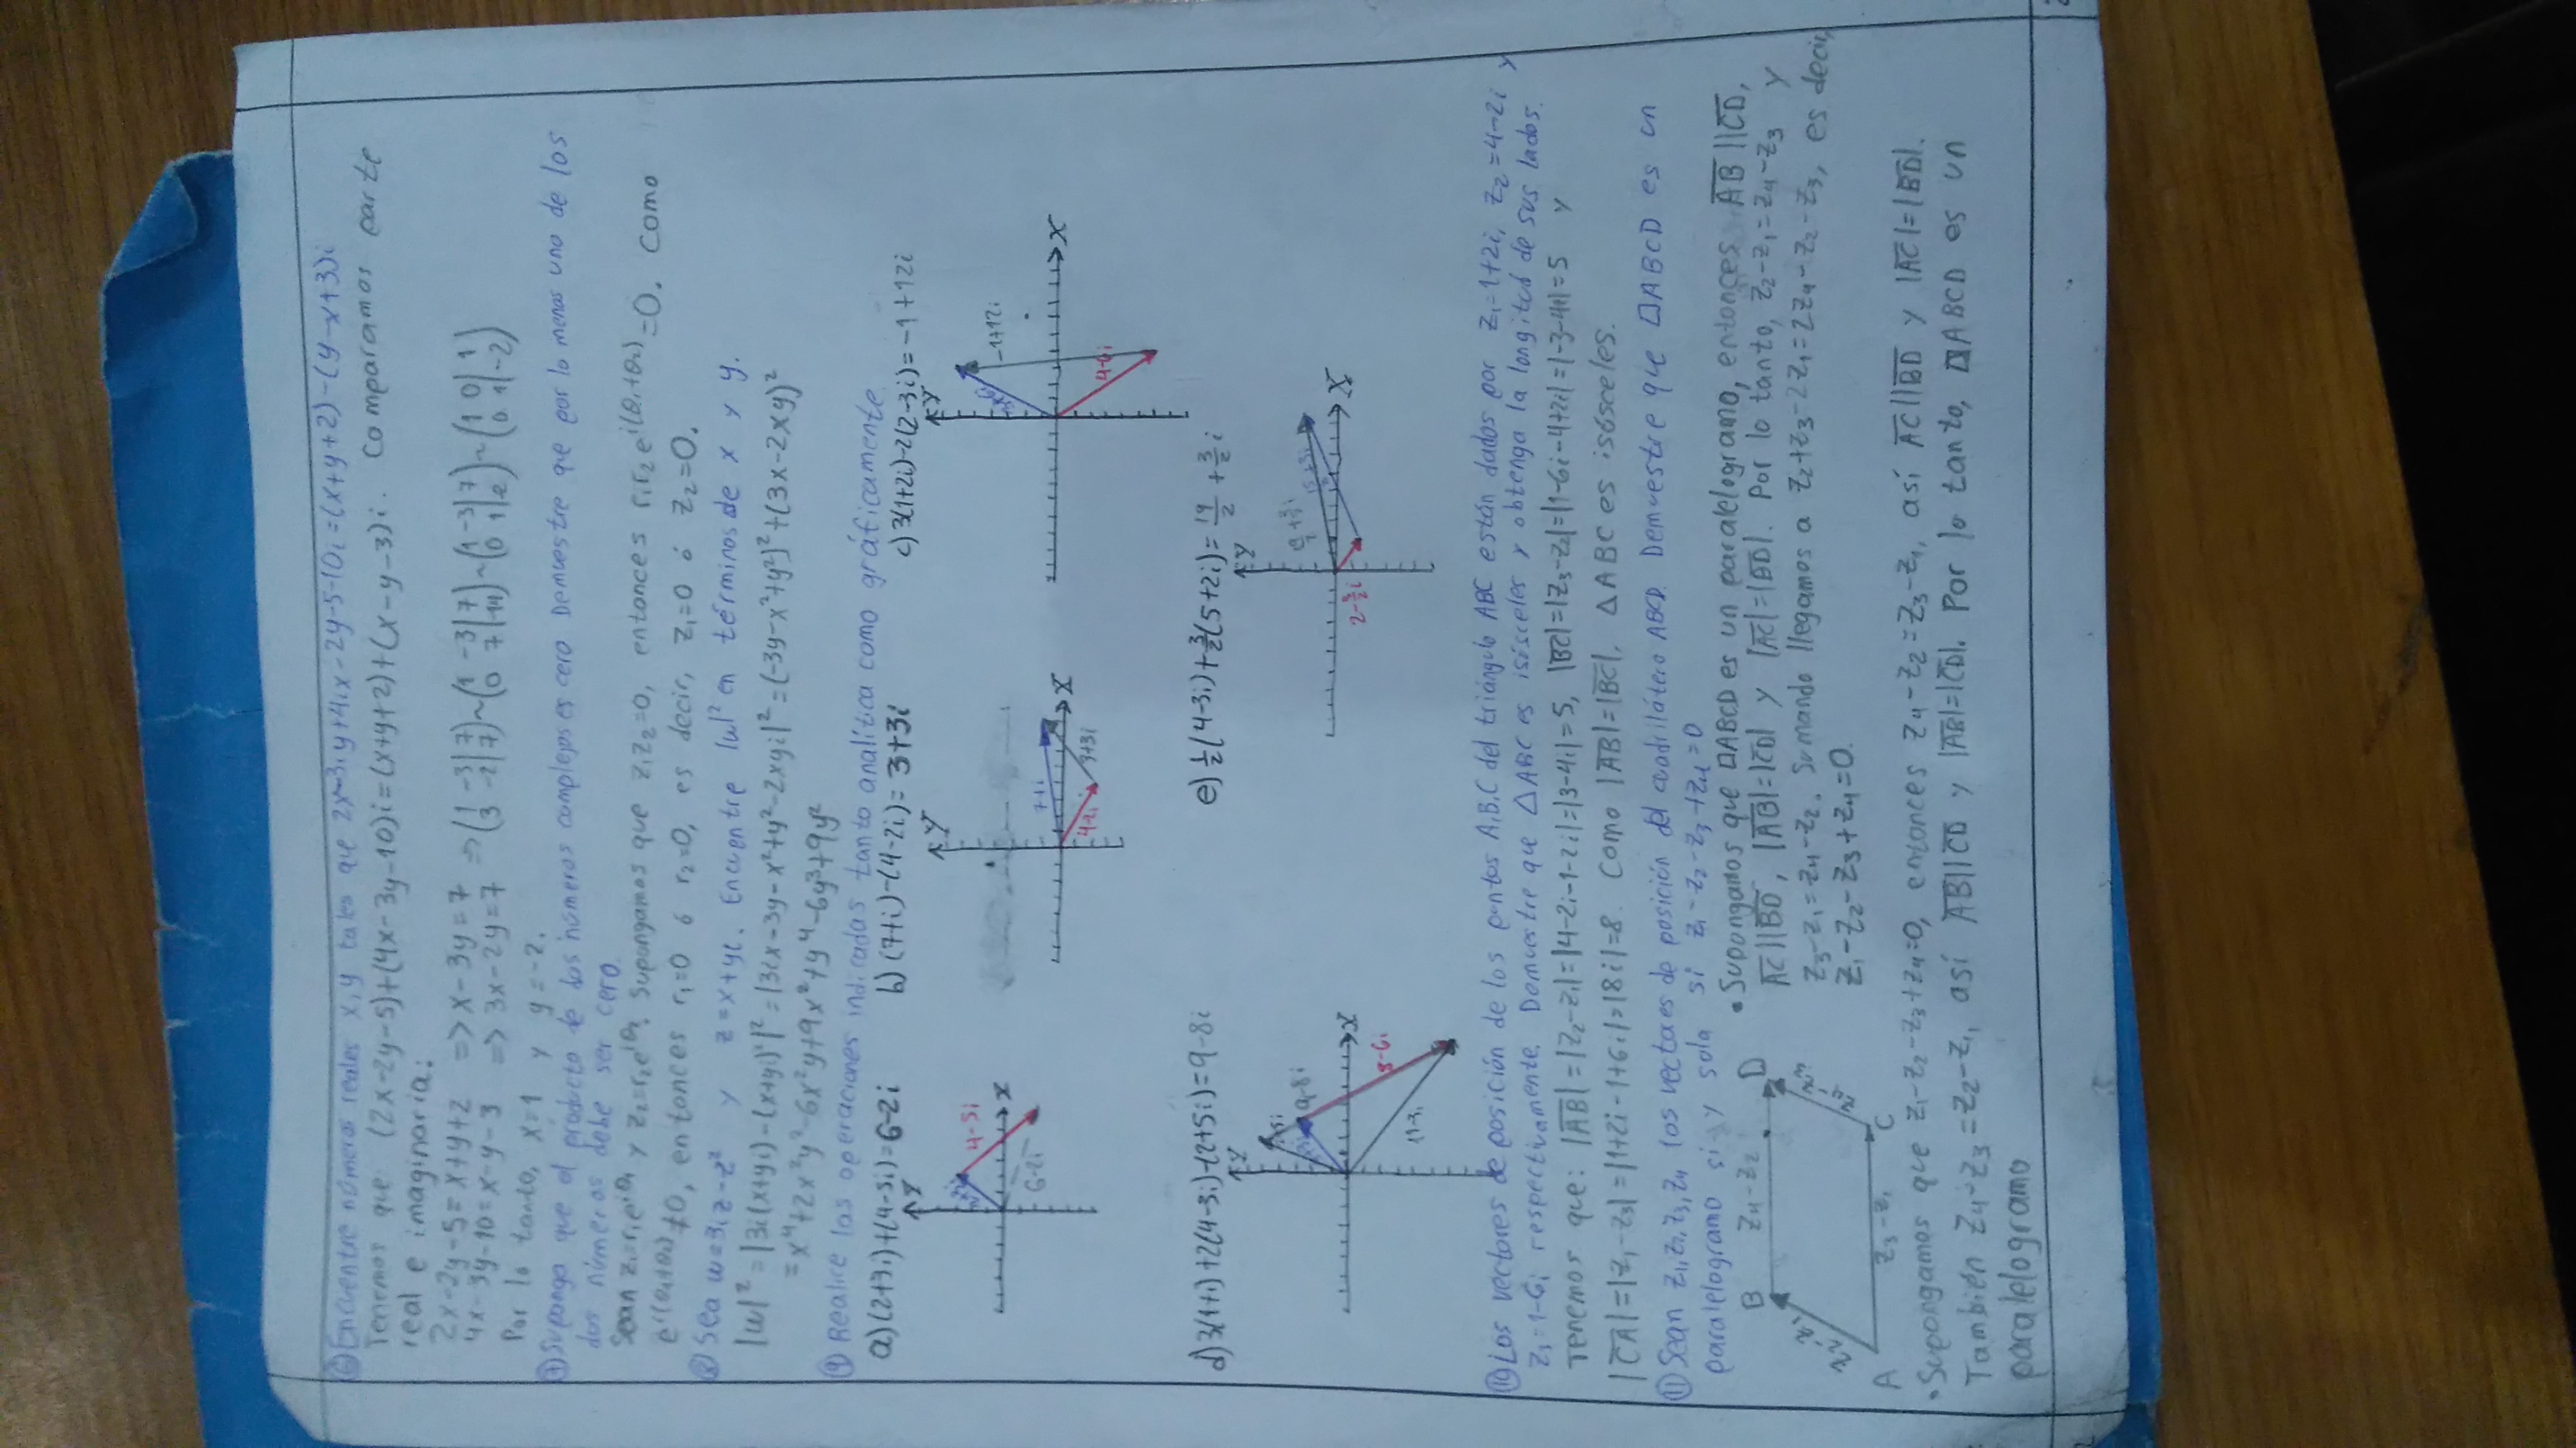 ⑥ Encuentre números reales x, y tales que 2x-3iy+4ix-2y-5-10i=(x+y+2)-(y-x+3)i
Tenemos que (2x-2y-5)+(4x-3y-10)i=(x+y+2)+(x-y-3)i. Comparamos parte
real e imaginaria:
2x-2y-5=x+y+2 => x-3y=7 => (1 -3|7 ~ (1 -3|7 ~ (1 -3|7 ~ (1 0|1
4x-3y-10=x-y-3 => 3x-2y=7 3 -2|7) 0 7|-14) 0 1|-2) 0 1|-2)
Por lo tanto, x=1 y y=-2.
⑦ Suponga que el producto de dos números complejos es cero Demuestre que por lo menos uno de los
dos números debe ser cero.
Sean z₁=r₁e^iθ₁ y z₂=r₂e^iθ₂. Supongamos que z₁z₂=0, entonces r₁r₂e^i(θ₁+θ₂)=0. Como
e^i(θ₁+θ₂)≠0, entonces r₁=0 ó r₂=0, es decir, z₁=0 ó z₂=0.
⑧ Sea w=3iz-z² y z=x+yi. Encuentre |w|² en términos de x y y.
|w|²=|3i(x+yi)-(x+yi)²|²=|3ix-3y-x²+y²-2xyi|²=(-3y-x²+y²)²+(3x-2xy)²
=x⁴+2x²y²-6x²y+9x²+y⁴-6y³+9y²
⑨ Realice las operaciones indicadas tanto analítica como gráficamente
a) (2+3i)+(4-5i)=6-2i b) (7+i)-(4-2i)=3+3i c) 3(1+2i)-2(2-3i)=-1+12i
Y Y Y
2+3i 4-5i X 6-2i
7+i X 4-2i 3+3i
3+6i -1+12i X 4-6i
d) 3(1+i)+2(4-3i)-(2+5i)=9-8i e) ½(4-3i)+3/2(5+2i)=19/2+3/2 i
Y Y
9-8i X 8-6i 11-3i
X 2-3/2 i
⑩ Los vectores de posición de los puntos A,B,C del triángulo ABC están dados por z₁=1+2i, z₂=4-2i y
z₃=1-6i respectivamente. Demuestre que △ABC es isósceles y obtenga la longitud de sus lados.
Tenemos que: |AB|=|z₂-z₁|=|4-2i-1-2i|=|3-4i|=5, |BC|=|z₃-z₂|=|1-6i-4+2i|=|-3-4i|=5 y
|CA|=|z₁-z₃|=|1+2i-1+6i|=|8i|=8. Como |AB|=|BC|, △ABC es isósceles.
⑪ Sean z₁,z₂,z₃,z₄ los vectores de posición del cuadrilátero ABCD. Demuestre que □ABCD es un
paralelogramo si y sola si z₁-z₂-z₃+z₄=0
B z₄-z₂ D
z₂-z₁ z₄-z₃
A z₃-z₁ C
• Supongamos que □ABCD es un paralelogramo, entonces AB||CD,
AC||BD, |AB|=|CD| y |AC|=|BD|. Por lo tanto, z₂-z₁=z₄-z₃ y
z₃-z₁=z₄-z₂. Sumando llegamos a z₂+z₃-2z₁=2z₄-z₂-z₃, es decir,
z₁-z₂-z₃+z₄=0.
• Supongamos que z₁-z₂-z₃+z₄=0, entonces z₄-z₂=z₃-z₁, así AC||BD y |AC|=|BD|.
También z₄-z₃=z₂-z₁, así AB||CD y |AB|=|CD|. Por lo tanto, □ABCD es un
paralelogramo